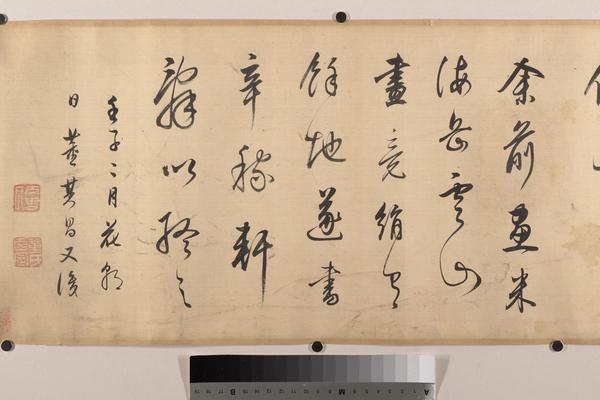 余前畫米
海岳雲山
畫竟絹有
餘地遂書
辛稼軒
辭以之
壬子二月花朝
日董其昌又